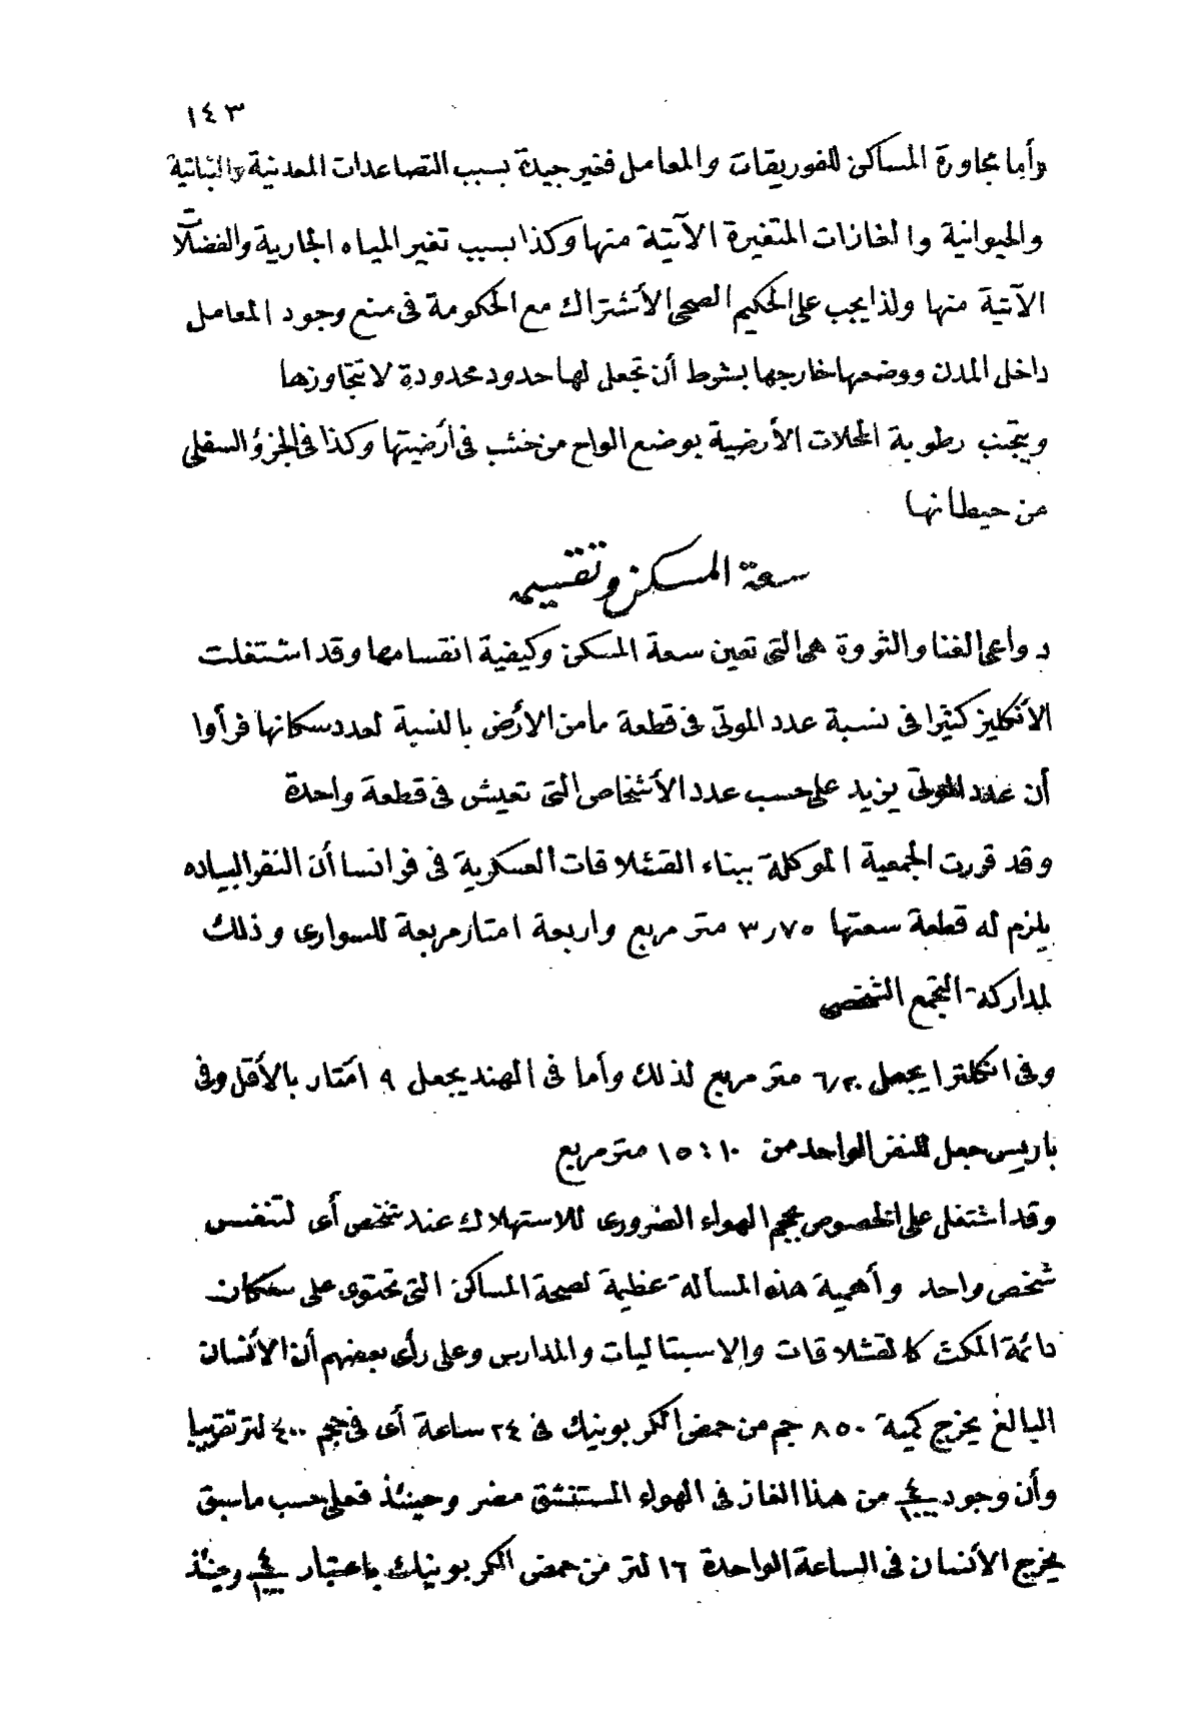 ١٤٣
وأما مجاورة المساكن للفوريقات والمعامل فغير جيدة بسبب التصاعدات المعدنية والنباتية
والحيوانية والغازات المتغيرة الآتية منها وكذا بسبب تغير المياه الجارية والفضلات
الآتية منها ولذا يجب على الحكيم الصحى الأشتراك مع الحكومة فى منع وجود المعامل
داخل المدن ووضعها خارجها بشرط أن تجعل لها حدود محدودة لا تتجاوزها
ويتجنب رطوبة المحلات الأرضية بوضع الواح من خشب فى أرضيتها وكذا فى الجزؤ السفلى
من حيطانها
سعة المسكن وتقسيمه
دواعى الغنا والثروة هى التى تعين سعة المسكن وكيفية انقسامها وقد اشتغلت
الأنكليز كثيرا فى نسبة عدد الموتى فى قطعة ما من الأرض بالنسبة لعدد سكانها فرأوا
أن عدد الموتى يزيد على حسب عدد الأشخاص التى تعيش فى قطعة واحدة
وقد قررت الجمعية الموكلة ببناء القشلاقات العسكرية فى فرانسا أن النفر البياده
يلزم له قطعة سعتها ٣٫٧٥ متر مربع واربعة امتار مربعة للسوارى وذلك
لمداركة التجمع الشخصى
وفى انكلترا يجعل ٦٫٢٠ متر مربع لذلك وأما فى الهند يجعل ٩ امتار بالأقل وفى
باريس جعل للنفر الواحد من ١٠ : ١٥ متر مربع
وقد اشتغل على الخصوص بحجم الهواء الضرورى للاستهلاك عند شخص أى لتنفس
شخص واحد وأهمية هذه المسألة عظيمة لصحة المساكن التى تحتوى على سكان
دائمة المكث كالقشلاقات والاسبتاليات والمدارس وعلى رأى بعضهم أن الأنسان
البالغ يخرج كمية ٨٥٠ جم من حمض الكربونيك فى ٢٤ ساعة أى فى حجم ٤٠٠ لتر تقريبا
وأن وجود ٤/١٠٠٠٠ من هذا الغاز فى الهواء المستنشق مضر وحينئذ فعلى حسب ما سبق
يخرج الأنسان فى الساعة الواحدة ١٦ لتر من حمض الكربونيك باعتبار ٤/١٠٠٠٠ وحينئذ